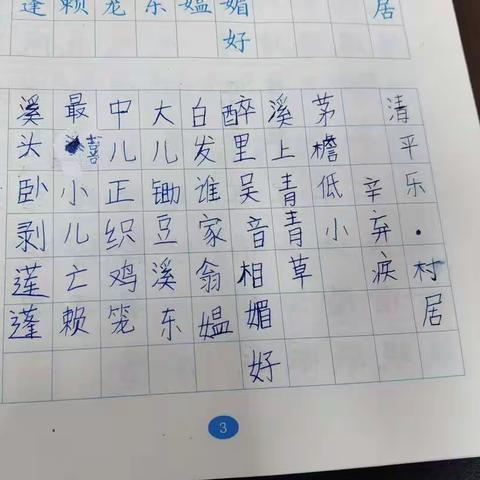 居
媚好
媪
东
笼
赖
蓬
清平乐·村居
辛弃疾
茅檐低小
溪上青青草
醉里吴音相媚好
白发谁家翁媪
大儿锄豆溪东
中儿正织鸡笼
最喜小儿亡赖
溪头卧剥莲蓬
3